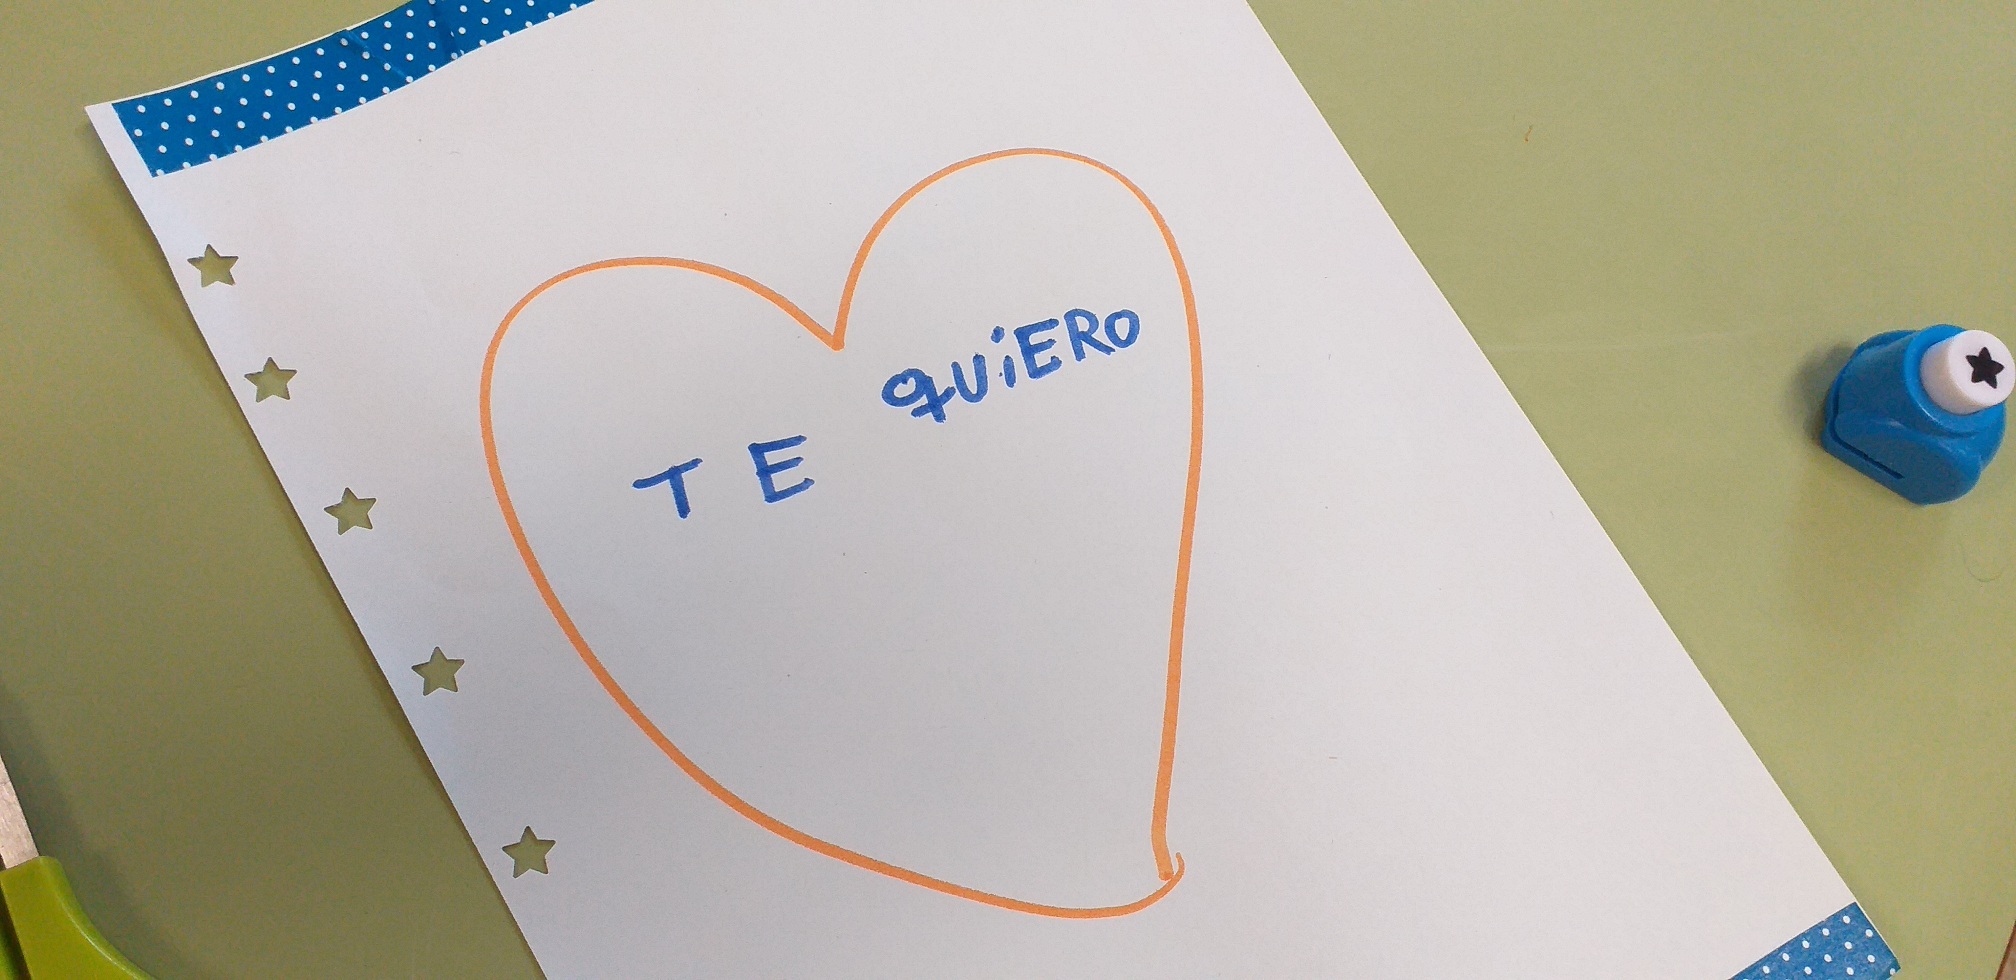 TE QUiERO